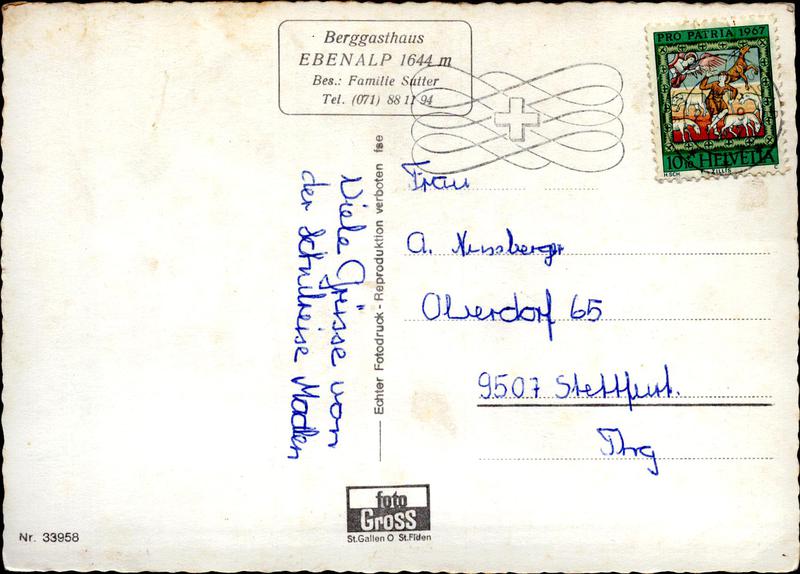 Berggasthaus
EBENALP 1644 m
Bes.: Familie Sutter
Tel. (071) 88 11 94
PRO PATRIA 1967
10+10 HELVETIA
H.SCH. ZILLIS
Viele Grüsse von
der Schulreise
Echter Fotodruck - Reproduktion verboten fse
Frau
A. Nussberger
Oberdorf 65
9507 Stettfurt.
Thrg
foto
GROSS
St.Gallen O St.Fiden
Nr. 33958